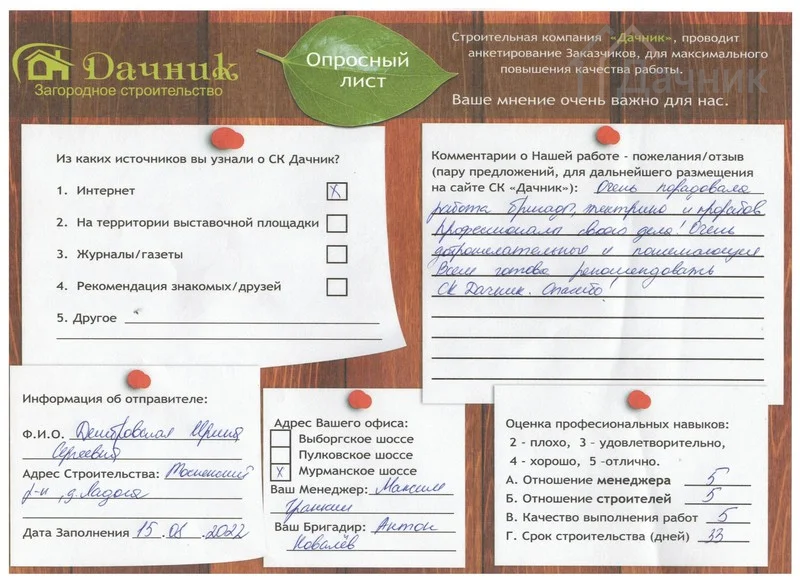 Дачник
Загородное строительство
Опросный
лист
Строительная компания «Дачник», проводит
анкетирование Заказчиков, для максимального
повышения качества работы.
Ваше мнение очень важно для нас.
Дачник
Из каких источников вы узнали о СК Дачник?
1. Интернет X
2. На территории выставочной площадки
3. Журналы/газеты
4. Рекомендация знакомых/друзей
5. Другое
Комментарии о Нашей работе - пожелания/отзыв
(пару предложений, для дальнейшего размещения
на сайте СК «Дачник»): Очень порадовала
работа бригады, электрика и
Профессионалы своего дела! Очень
доброжелательные и понимающие
Всем готова рекомендовать
СК Дачник. Спасибо!
Информация об отправителе:
Ф.И.О. Ирина
Сергеевна
Адрес Строительства: Тосненский
р-н, д. Ладога
Дата Заполнения 15.08.2022
Адрес Вашего офиса:
Выборгское шоссе
Пулковское шоссе
X Мурманское шоссе
Ваш Менеджер: Максим
Ваш Бригадир: Антон
Ковалёв
Оценка профессиональных навыков:
2 - плохо, 3 - удовлетворительно,
4 - хорошо, 5 -отлично.
А. Отношение менеджера 5
Б. Отношение строителей 5
В. Качество выполнения работ 5
Г. Срок строительства (дней) 33